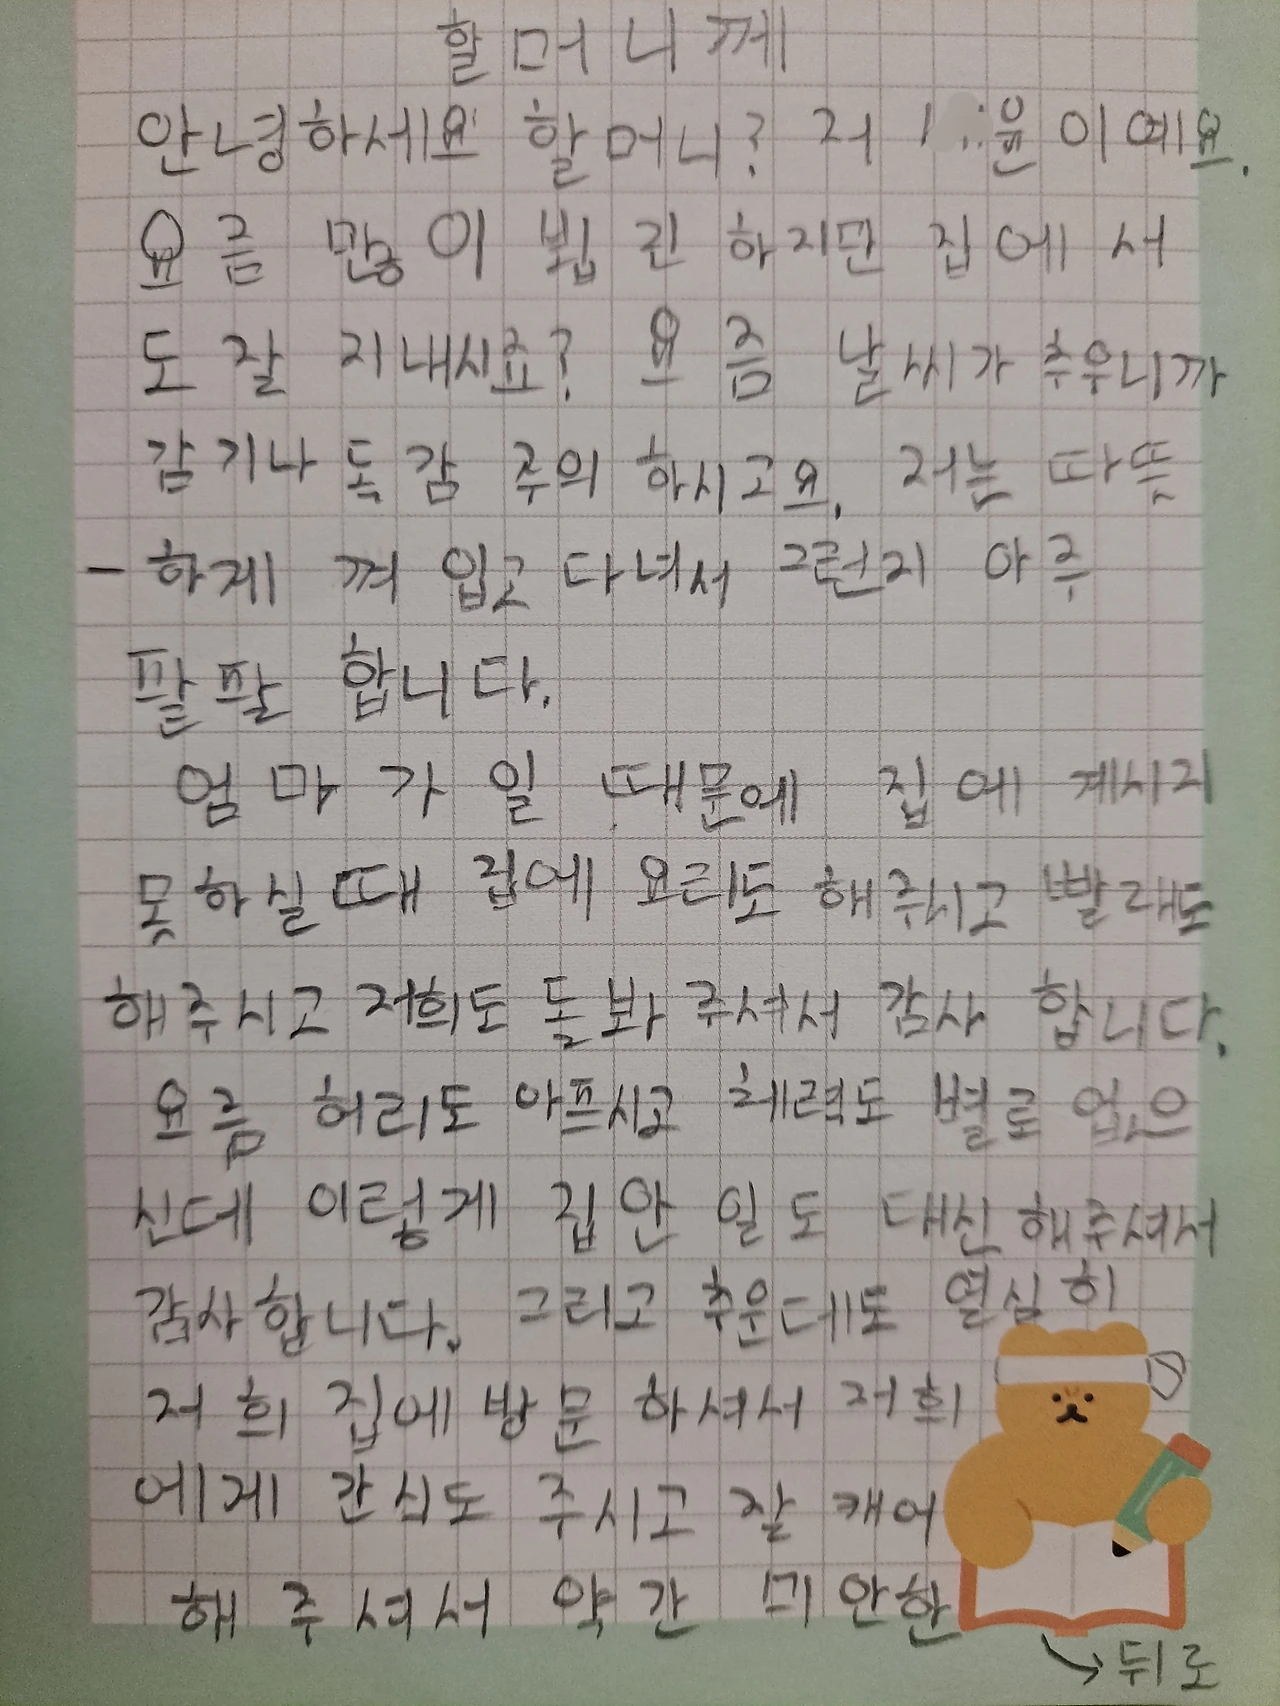 할머니께
안녕하세요 할머니? 저 윤이예요.
요즘 많이 뵙긴 하지만 집에서
도 잘 지내시죠? 요즘 날씨가 추우니까
감기나 독감 주의 하시고요. 저는 따뜻
-하게 껴 입고 다녀서 그런지 아주
팔팔 합니다.
엄마가 일 때문에 집에 계시지
못하실때 집에 요리도 해주시고 빨래도
해주시고 저희도 돌봐 주셔서 감사 합니다.
요즘 허리도 아프시고 체력도 별로 없으
신데 이렇게 집안 일도 대신 해주셔서
감사합니다. 그리고 추운데도 열심히
저희 집에 방문 하셔서 저희
에게 간식도 주시고 잘 캐어
해 주셔서 약간 미안한
→ 뒤로